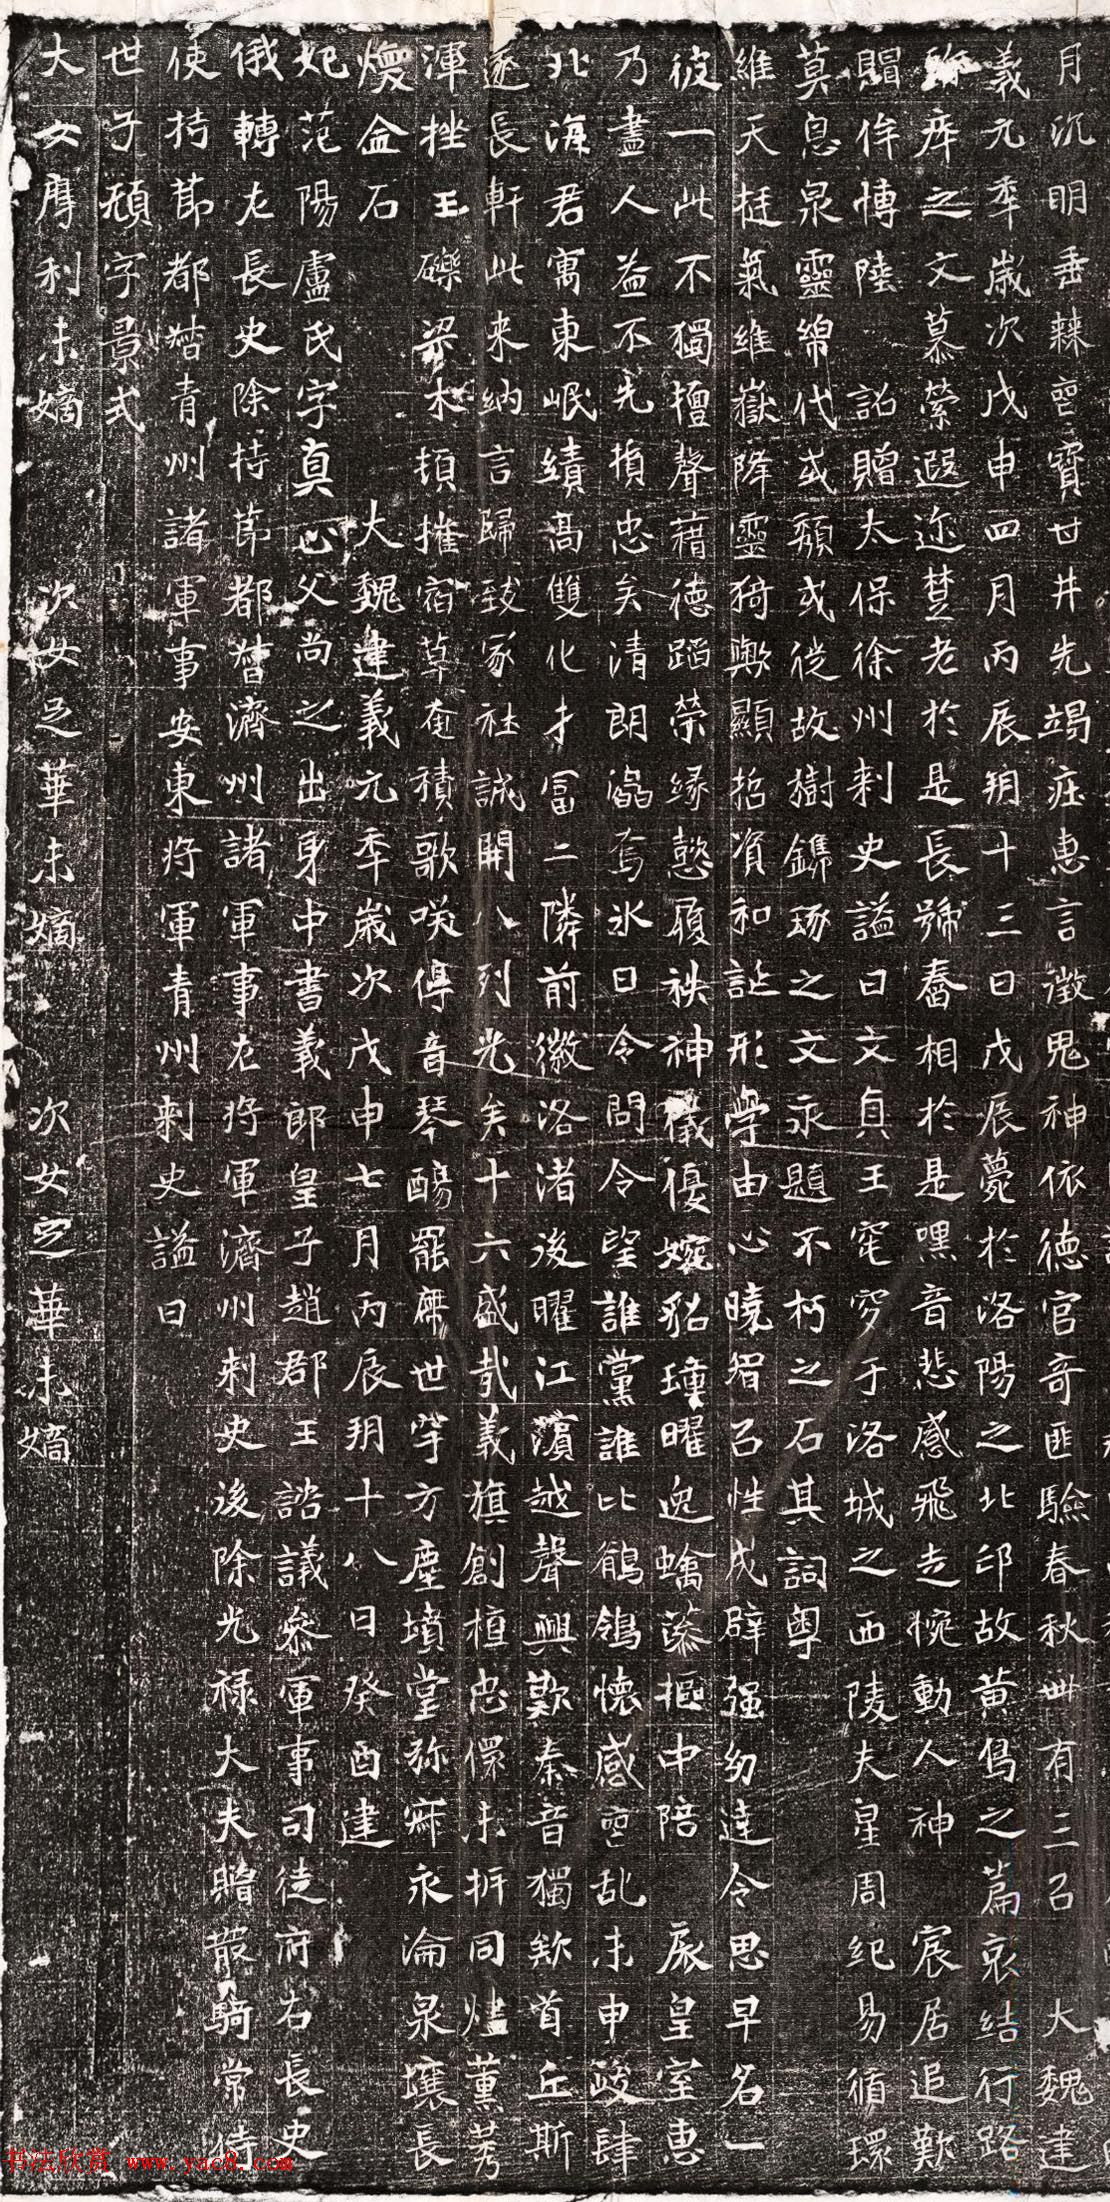 月沉明垂棘空寶甘井先竭疰惠言澂鬼神依德官奇匪驗春秋卌有三召 大魏建
義元年歲次戊申四月丙辰朔十三日戊辰薨於洛陽之北邙故黃鳥之篇哀結行路
殄瘁之文慕縈遐迩楚老於是長號舂相於是嘿音悲感飛走惋動人神 宸居追歎
賵侔愽陸 詔贈太保徐州刺史謚曰文貞王窀穸于洛城之西陵夫星周紀易循環
莫息泉靈綿代或頽或徙故樹鐫琢之文永題不朽之石其詞粵
維天挺氣維嶽降靈猗歟顯哲資和誕形學由心曉智召性成辟强幼達令思早名
彼一此不獨擅聲藉德蹈榮緣懿履袟神儀優婉 曜逸 中陪 扆皇室惠
乃盡人益不先損忠矣清朗 焉氷日令問令望誰黨誰比鶺鴒懷感空乱未申 肆
北海君寓東岷績高雙化才冨二隣前徽洛渚後曜江濵越聲興歎秦音獨欸首丘斯
遂長軒此来納言歸致冢社誠開八列光矣十六盛哉義旗創植忠 未折同爐薰芳
渾挫玉礫梁木頓摧宿草奄積歌咲停音琴醑罷席世罕方塵墳堂弥寂永淪泉壤長
燠金石 大魏建義元年歲次戊申七月丙辰朔十八日癸酉建
妃范陽盧氏字真心父尚之出身中書義郎皇子趙郡王諮議叅軍事司徒府右長史
俄轉左長史除持節都督濟州諸軍事左將軍濟州刺史後除光祿大夫贈散騎常侍
使持節都督青州諸軍事安東將軍青州刺史謚曰
世子頏字景式
大女摩利未嫡 次女足華未嫡 次女定華未嫡
书法欣赏 www.yac8.com